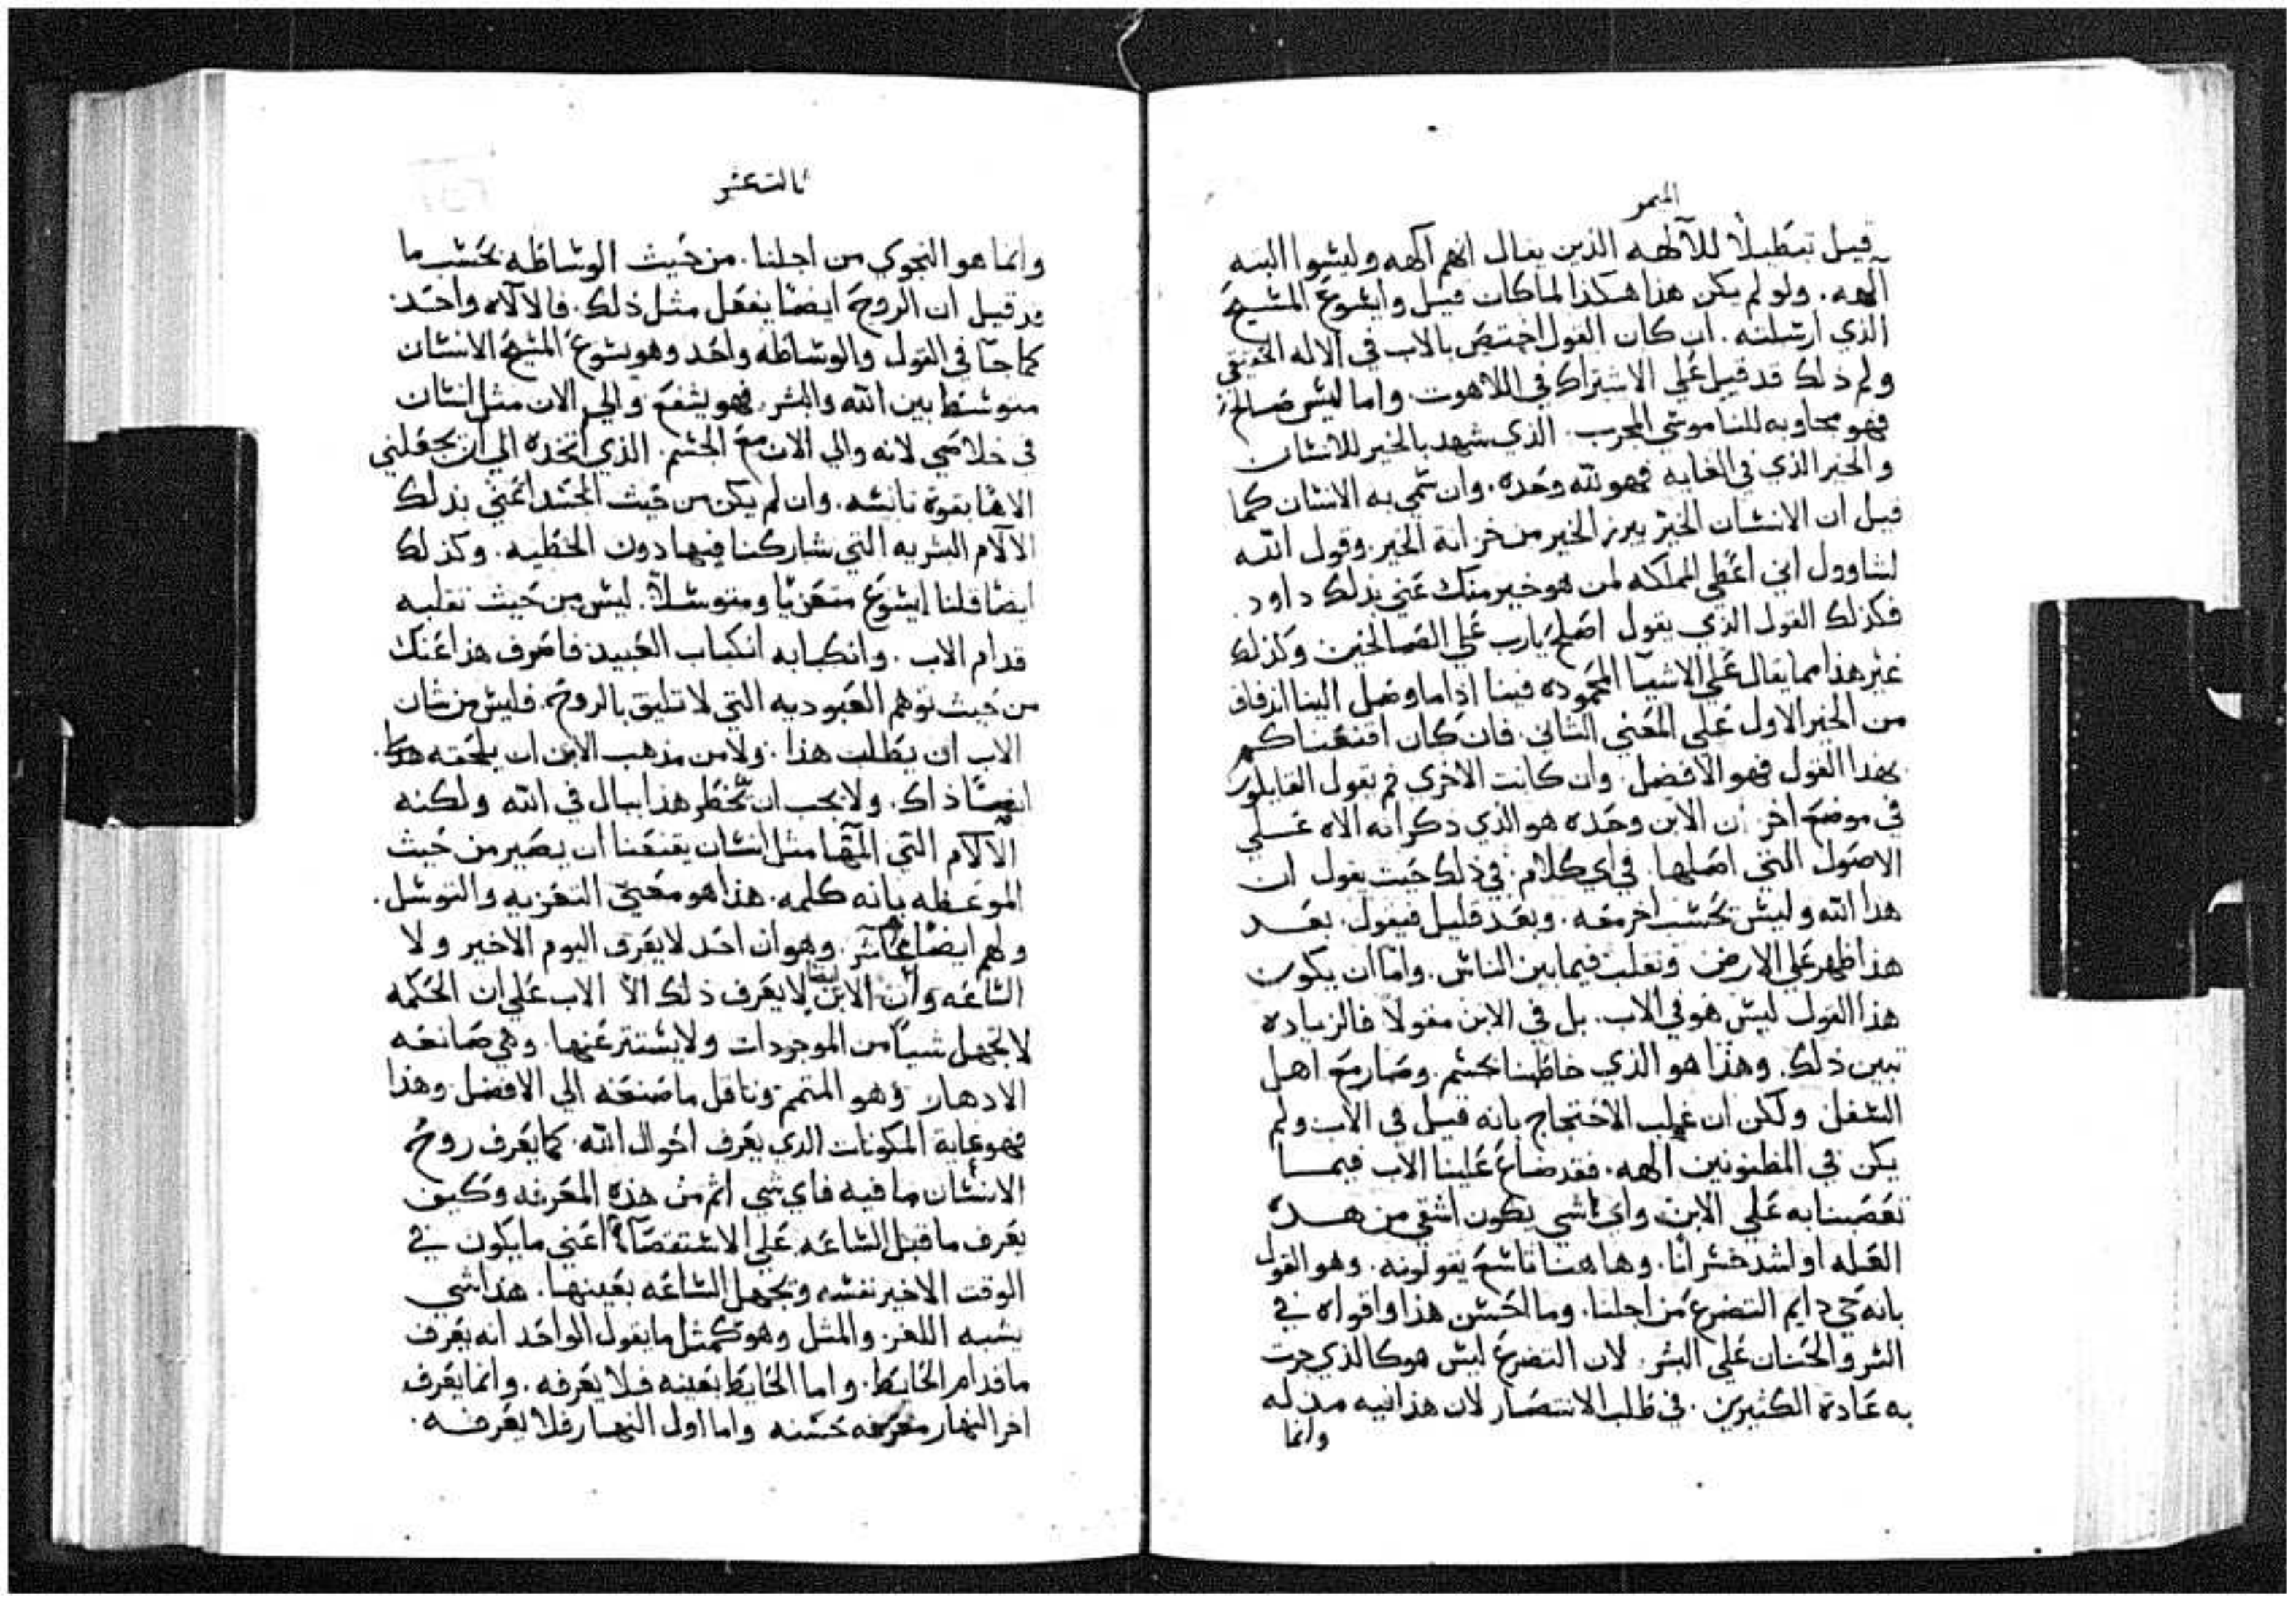 الميمر
قيل تبطيلا للآلهه الذين يقال انهم آلهه وليسوا البته
آلهه. ولو لم يكن هذا هكذا لما كان قيل وايشوع المسيح
الذي ارسلته. ان كان القول اختص بالاب في الاله الحقيقي
ولم ذلك قد قيل علي الاشتراك في اللاهوت. واما ليس صالح
فهو مجاوبه للناموسي المجرب. الذي شهد بالخير للانسان
والخير الذي في الغايه فهو لله وحده. وان سمي به الانسان كما
قيل ان الانسان الخير يبرز الخير من خزانة الخير. وقول الله
لشاوول اني اعطي المملكه لمن هو خير منك عني بذلك داود.
فكذلك القول الذي يقول اصلح يارب علي الصالحين وكذلك
غير هذا مما يقال علي الاشيآ المحموده فينا اذا ما وصل الينا اندفاق
من الخير الاول علي المعني الثاني. فان كان اقنعناكم
بهذا القول فهو الافضل. وان كانت الاخري فم يقول القايلون
في موضع اخر ان الابن وحده هو الذي ذكر انه الاه علي
الاصول التي اصلها. في اي كلام. في ذلك حيث يقول ان
هذا الله وليس يحسب اخر معه. وبعد قليل فيقول. بعد
هذا ظهر علي الارض وتقلب فيما بين الناس. واما ان يكون
هذا القول ليس هو في الاب. بل في الابن مقولا فالزياده
تبين ذلك. وهذا هو الذي خاطبنا بجسم. وصار مع اهل
السفل ولكن ان غلب الاحتجاج بانه قيل في الاب ولم
يكن في المظنونين آلهه. فقد ضاع علينا الاب فيما
تعصبنا به علي الابن. واي شي يكون اشقي من هذه
الغله او اشد خسرانا. وهاهنا تاسع يقولونه. وهو القول
بانه حي دايم التضرع من اجلنا. وما احسن هذا واقواه في
السر والحنان علي البشر. لان التضرع ليس هو كالذي جرت
به عادة الكثيرين. في طلب الانتصار لان هذا فيه مذله
وانما
ثالث عشر
وانما هو النجوي من اجلنا. من حيث الوساطه بحسب ما
قد قيل ان الروح ايضا يفعل مثل ذلك. فالالاه واحد
كما جآ في القول والوساطه واحد وهو يسوع المسيح الانسان
متوسطا بين الله والبشر. فهو يشفع والي الان مثل انسان
في خلاصي لانه والي الان مع الجسم. الذي اتخذه الي ان يجعلني
الاها بقوة تانسه. وان لم يكن من حيث الجسد اعني بذلك
الآلام البشريه التي شاركنا فيها دون الخطيه. وكذلك
ايضا قلنا ايشوع متعزيا ومتوسلا. ليس من حيث تقلبه
قدام الاب. وانكبابه انكباب العبيد فاصرف هذا عنك
من حيث توهم العبوديه التي لا تليق بالروح. فليس من شان
الاب ان يطلب هذا. ولا من مذهب الابن ان يلحقه هذا.
ايضا ذاك. ولا يجب ان يخطر هذا ببال في الله ولكنه
الآلام التي آلمها مثل انسان يقنعنا ان يصير من حيث
الموعظه بانه كلمه. هذا هو معني التعزيه والتوسل.
ولهم ايضا عاشر. وهو ان احد لا يعرف اليوم الاخير ولا
الساعه وان الابن ايضا لا يعرف ذلك الا الاب علي ان الحكمه
لا تجهل شيا من الموجودات ولا يستتر عنها. وهي صانعه
الادهار وهو المتمم وناقل ما صنعه الي الافضل. وهذا
فهو غاية المكونات الذي يعرف احوال الله. كما يعرف روح
الانسان ما فيه فاي شي اتم من هذه المعرفه وكيف
يعرف ما قبل الساعه علي الاستقصآ. اعني ما يكون في
الوقت الاخير نفسه ويجهل الساعه بعينها. هذا شي
يشبه اللغز والمثل وهو كمثل ما يقول الواحد انه يعرف
ما قدام الحايط. واما الحايط بعينه فلا يعرفه. وانما يعرف
اخر النهار معرفه حسنه واما اول النهار فلا يعرفه.